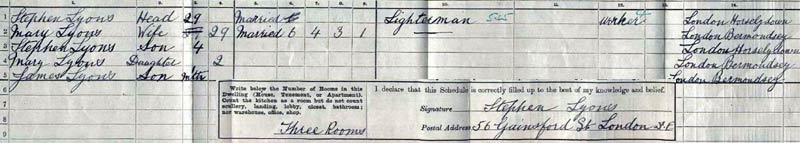 1 Stephen Lyons Head 29 Married Lighterman 545 Worker London Horselydown
2 Mary Lyons Wife 29 Married 6 4 3 1 London Bermondsey
3 Stephen Lyons Son 4 London Horselydown
4 Mary Lyons Daughter 2 London Bermondsey
5 James Lyons Son mths London Bermondsey
6
7
8
9
Write below the Number of Rooms in this
Dwelling (House, Tenement, or Apartment).
Count the kitchen as a room but do not count
scullery, landing, lobby, closet, bathroom;
nor warehouse, office, shop.
Three Rooms
I declare that this Schedule is correctly filled up to the best of my knowledge and belief.
Signature Stephen Lyons
Postal Address 56 Gainsford St London S.E